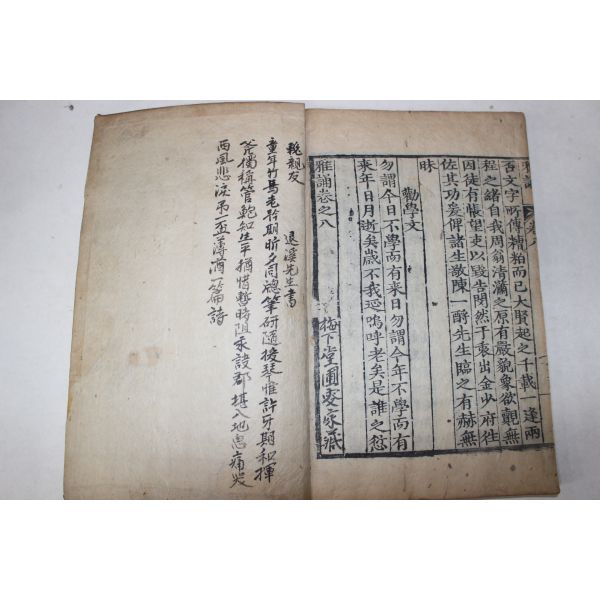 舌文字所傳糟粕而已大賢起之千載一逢兩
程之緒自我周翁清瀟之原有嚴貌象欲觀無
因徒有悵望吏以毀告閔然于衷出金少府往
佐其功爰俾諸生歌陳一酹先生臨之有赫無
昧
勸學文
勿謂今日不學而有來日勿謂今年不學而有
來年日月逝矣歲不我延嗚呼老矣是誰之愆
雅誦卷之八
梅下堂圃安家藏
輓親友
退溪先生書
童年竹馬老幹期昕夕同牕筆研隨援琴惟許牙期和揮
斧偏稱管鮑知生平猶惜暫時阻永設郡堪入地悲痛哭
西風悲淚吊一盃薄酒一篇詩